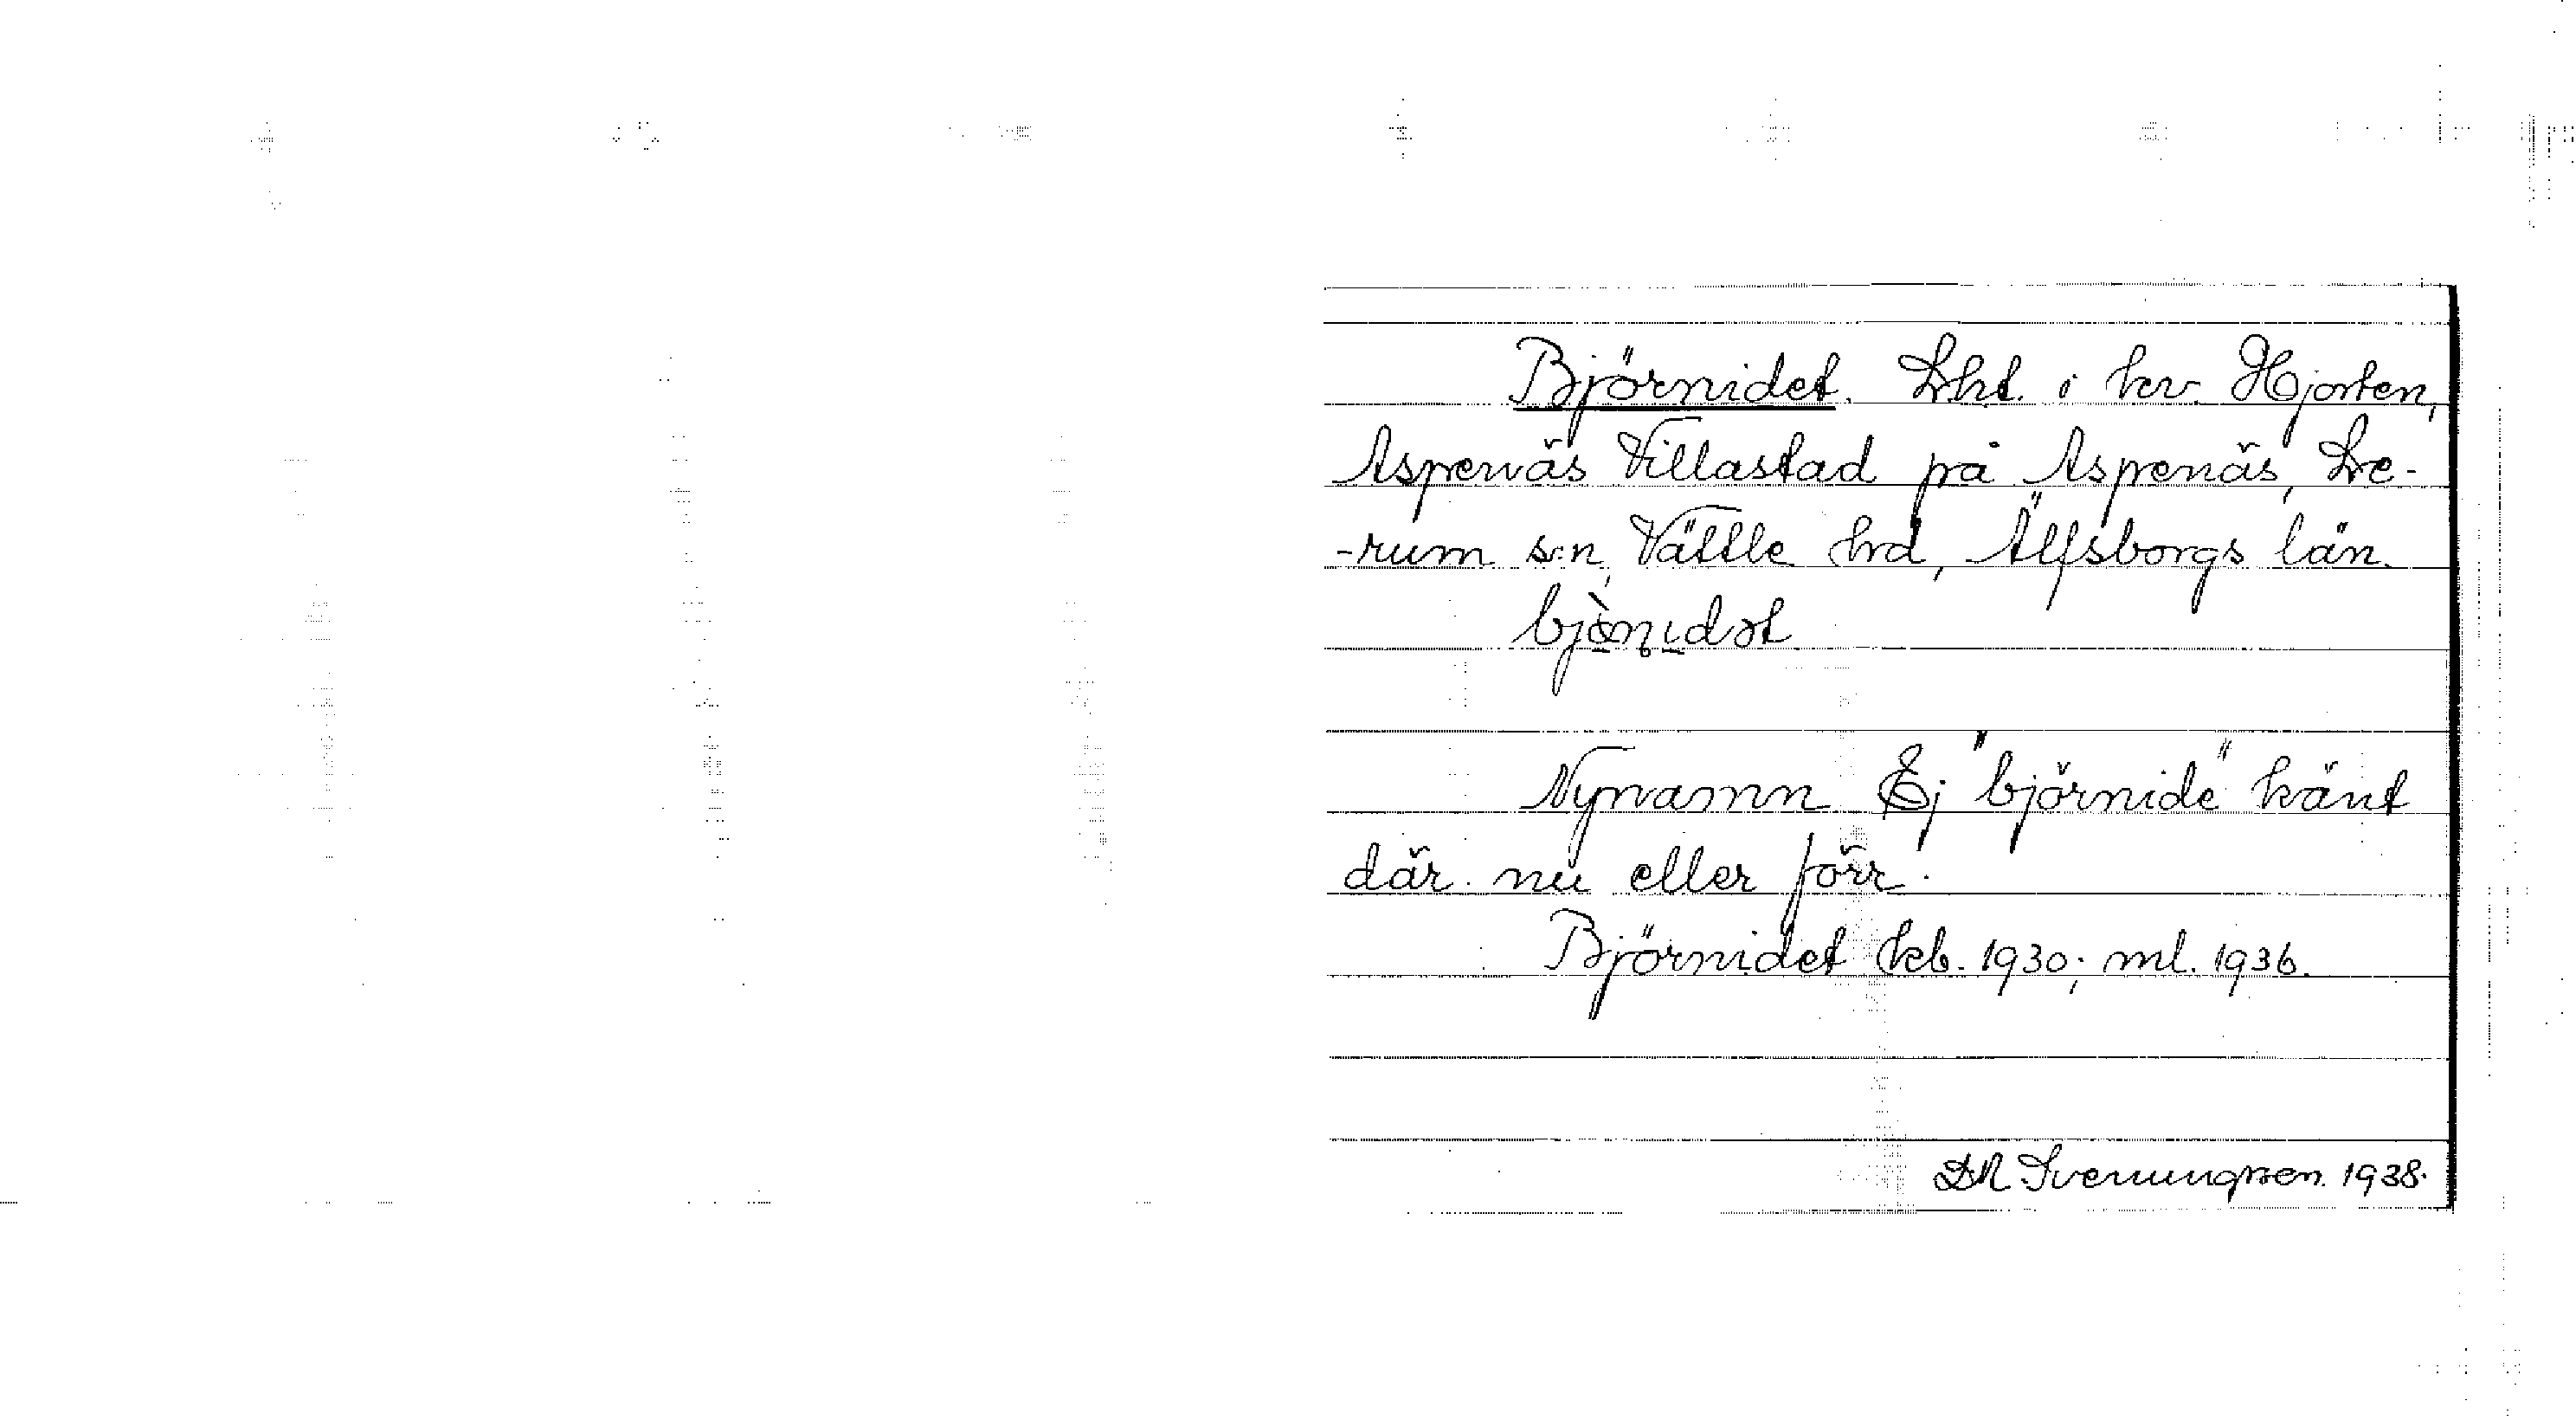 Björnidet. Lht. i kv. Hjorten,
Aspenäs Villastad på Aspenäs, Le-
-rum s:n, Vättle hd, Älfsborgs län.
Nynamn Ej "björnide" känt
där nu eller förr.
Björnidet kb. 1930; ml. 1936.
Svenungsson. 1938.